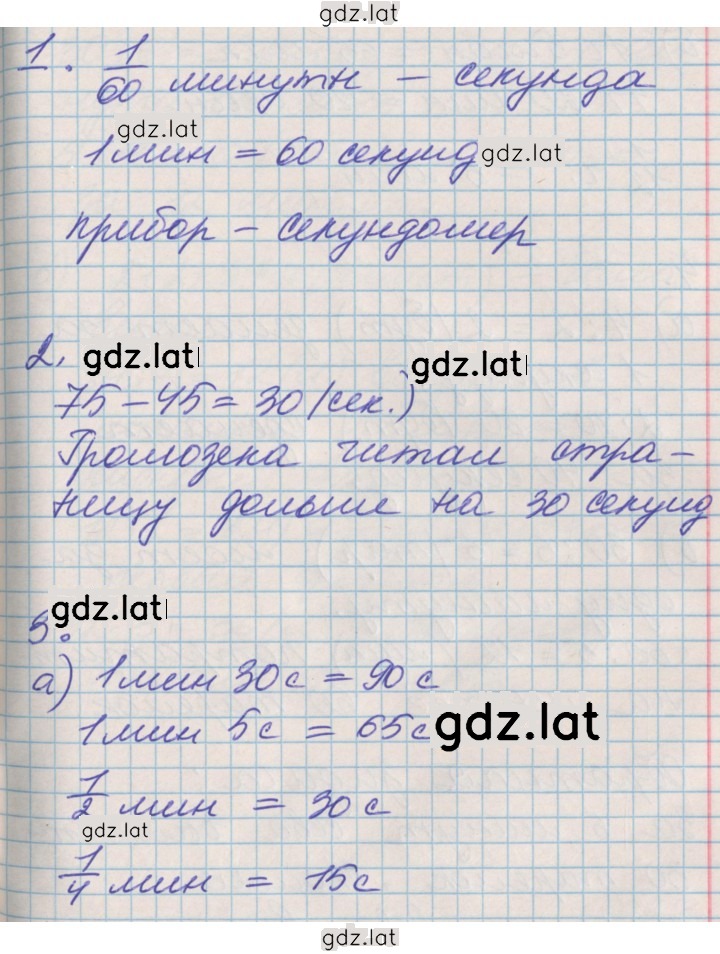 gdz.lat
1. 1/60 минуты – секунда
gdz.lat
1 мин = 60 секунд gdz.lat
прибор – секундомер
2. gdz.lat
gdz.lat
75 – 45 = 30 (сек.)
Громозека читал стра-
ницу дольше на 30 секунд
gdz.lat
3.
а) 1 мин 30 с = 90 с
1 мин 5 с = 65 с gdz.lat
1/2 мин = 30 с
gdz.lat
1/4 мин = 15 с
gdz.lat